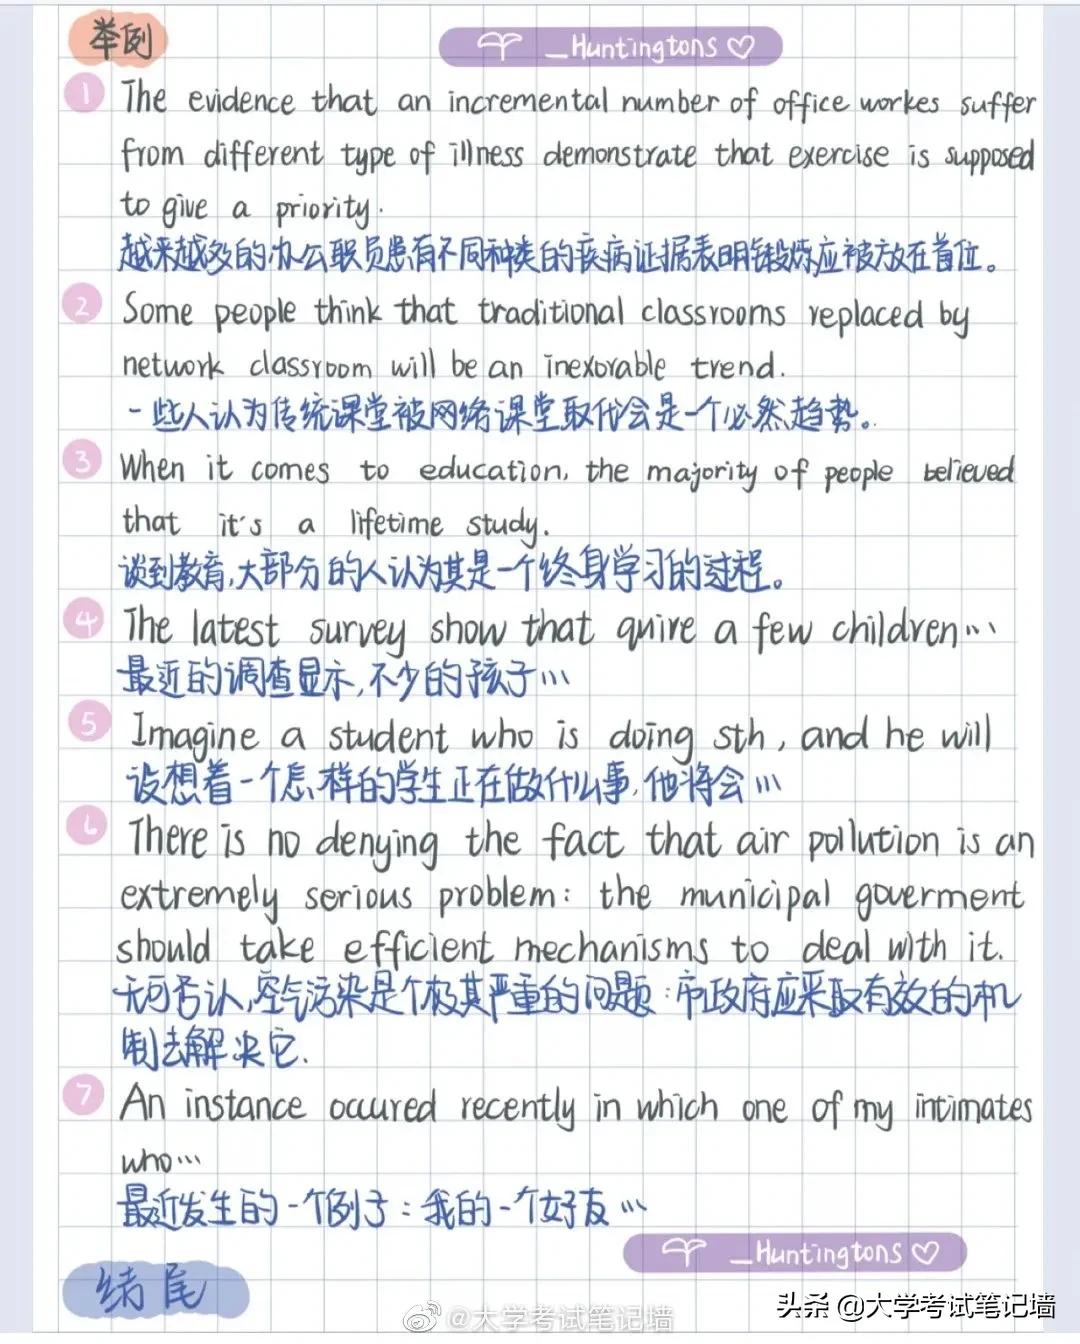 举例
_Huntingtons
1 The evidence that an incremental number of office workes suffer
from different type of illness demonstrate that exercise is supposed
to give a priority.
越来越多的办公职员患有不同种类的疾病证据表明锻炼应被放在首位。
2 Some people think that traditional classrooms replaced by
network classroom will be an inexorable trend.
一些人认为传统课堂被网络课堂取代会是一个必然趋势。
3 When it comes to education, the majority of people believed
that it's a lifetime study.
谈到教育,大部分的人认为其是一个终身学习的过程。
4 The latest survey show that quire a few children…
最近的调查显示,不少的孩子…
5 Imagine a student who is doing sth, and he will
设想着一个怎样的学生正在做什么事,他将会…
6 There is no denying the fact that air pollution is an
extremely serious problem: the municipal goverment
should take efficient mechanisms to deal with it.
无可否认,空气污染是个极其严重的问题:市政府应采取有效的机
制去解决它.
7 An instance occured recently in which one of my intimates
who…
最近发生的一个例子:我的一个好友…
_Huntingtons
结尾
@大学考试笔记墙
头条 @大学考试笔记墙